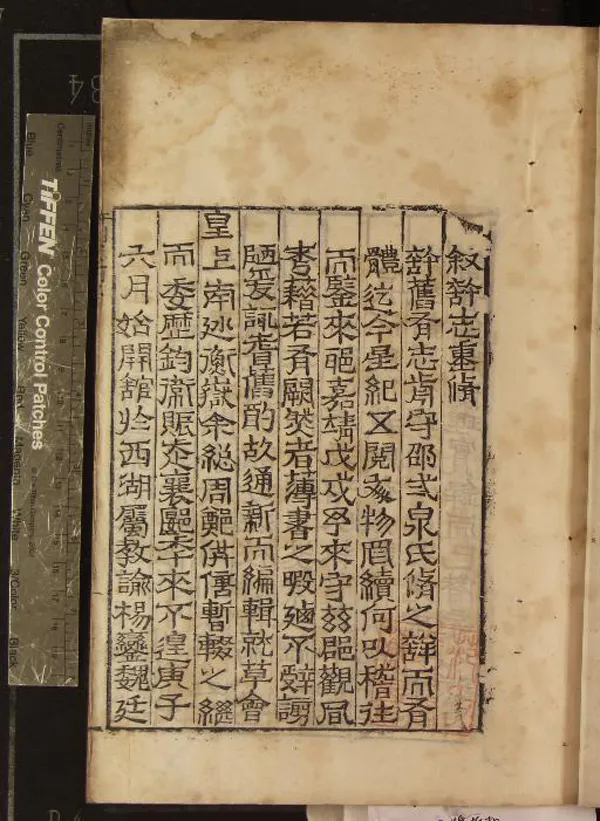 叙許志重脩
許舊有志前守邵弍泉氏脩之詳而有
體迄今星紀五閱物罔續何以稽往
而鑒來邪嘉靖戊戌予來守茲郡觀風
考籍若有闕然者薄書之暇迺不辭謭
陋爰諏耆舊酌故通新而編輯就草會
皇上南巡衡嶽余總周供偫暫輟之繼
而委歷鈞衛賑襄郾來不遑庚子
六月始開館於西湖屬教諭楊鑾魏廷
TIFFEN Color Control Patches
Centimetres
Blue
Green
Yellow
Red
Magenta
White
3/Color
Black